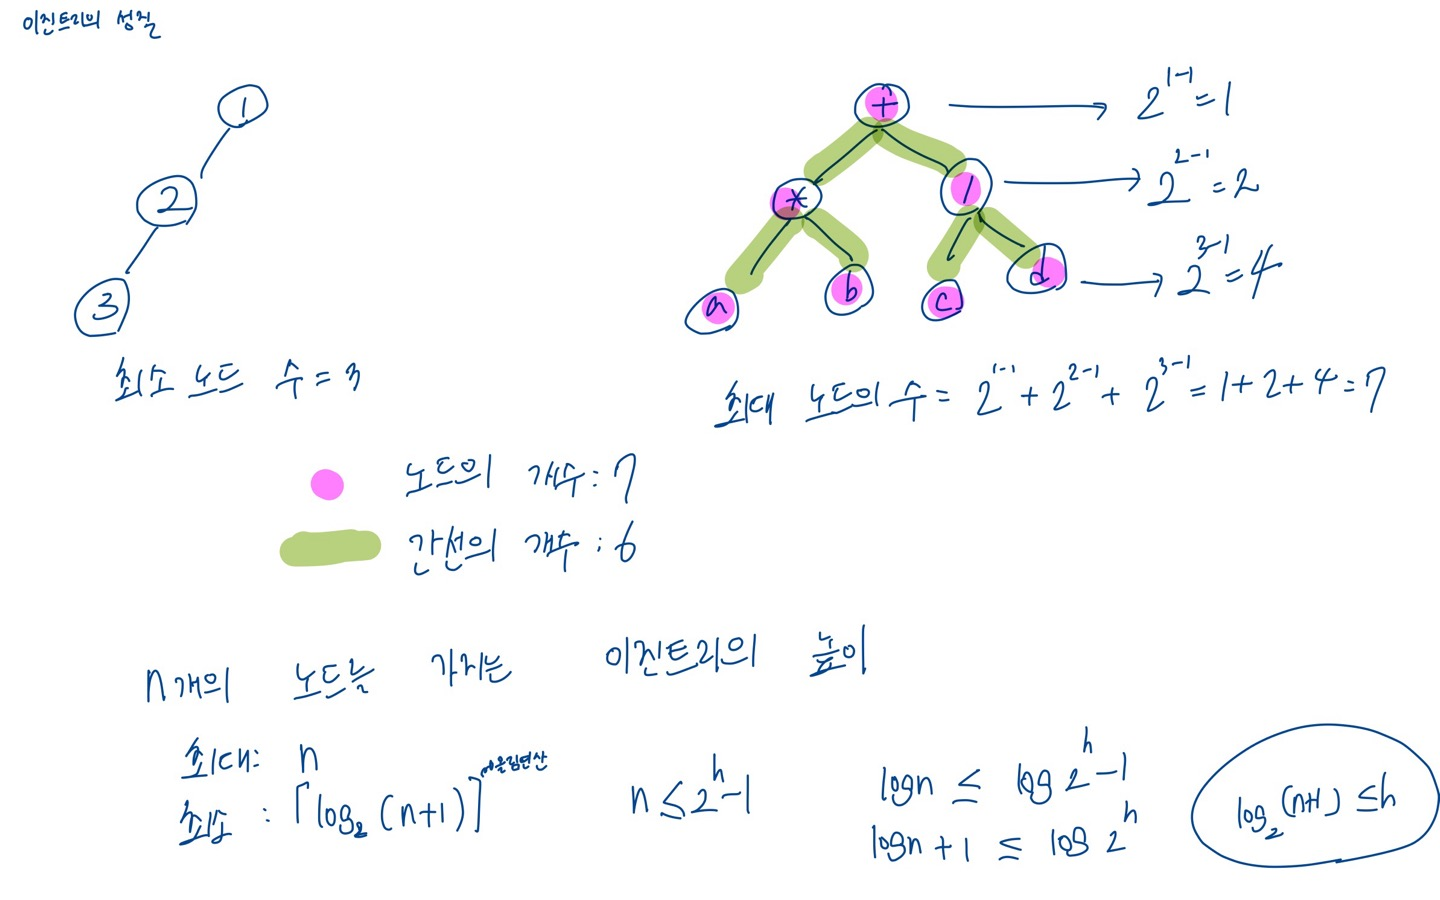 이진트리의 성질
1
2
3
최소 노드 수 = 3
+
*
/
a
b
c
d
2^{1-1} = 1
2^{2-1} = 2
2^{3-1} = 4
최대 노드의 수 = 2^{1-1} + 2^{2-1} + 2^{3-1} = 1 + 2 + 4 = 7
노드의 개수 : 7
간선의 개수 : 6
n개의 노드를 가지는 이진트리의 높이
최대: n
최소 : ⌈log₂(n+1)⌉ →올림연산
n ≤ 2^h - 1
logn ≤ log 2^h - 1
logn + 1 ≤ log 2^h
log₂(n+1) ≤ h